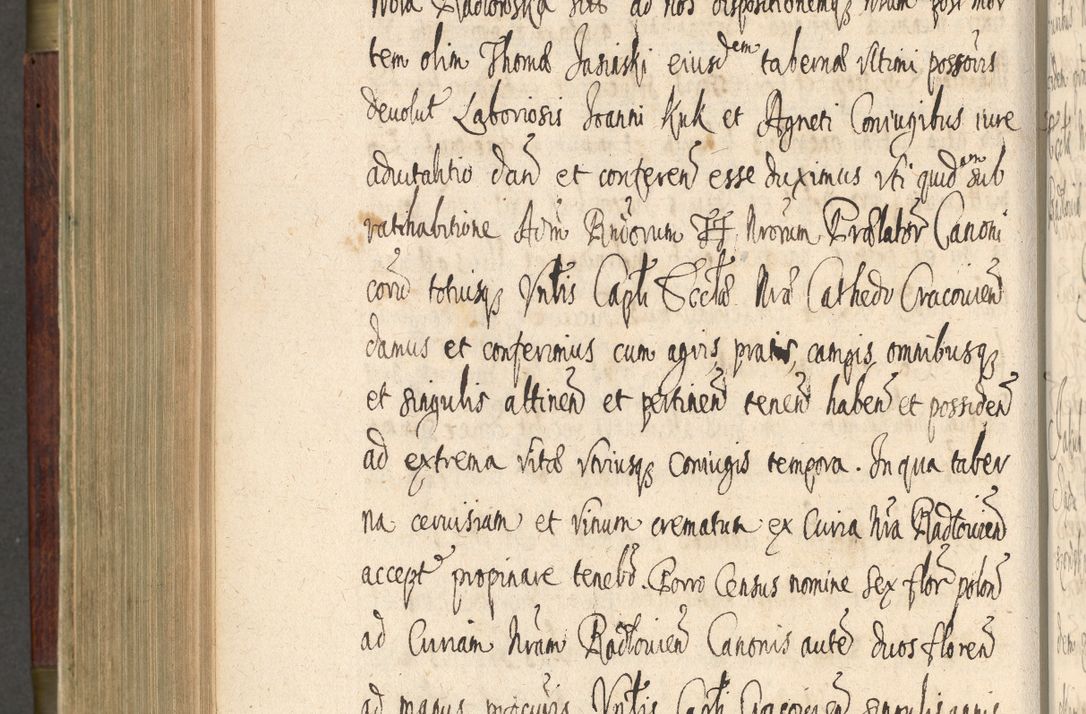 tem olim Thomæ Jasinski eiusdem tabernæ Vltimi possōris
devolut Laboriosis Joanni Kuk et Agneti Coniugibus iure
aduitalitio dan̄ et conferen̄ esse duximus vti quidem sub
ratihabitione Adm̄ Rndorum FF. Nrōrum Prælatōr Canoni
corū totiusq Vnlis Capli Eccłæ Nrǣ Cathedr Cracovien̄
damus et conferimus cum agris, pratis, campis, omnibusq
et singulis attinen̄ et pertinen̄ tenen̄ haben̄ et possiden̄
ad extrema vitæ vtriusq Coniugis tempora. In qua taber
na cervisiam et vinum crematum ex Curia Nrā Radlovien̄
accept propinare tenebt. Porro Census nomine Sex flor polon̄
ad Curiam Nrām Radlovien̄ Canonis autē duos floren̄